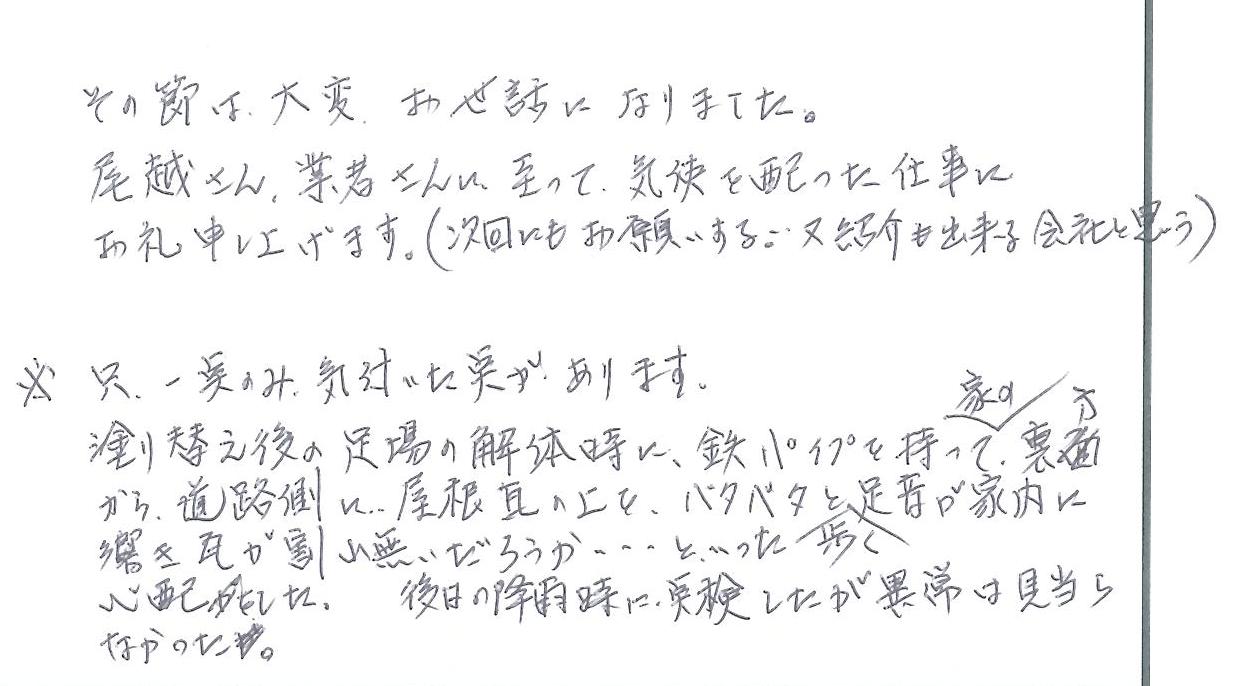 その節は、大変、お世話になりました。
尾越さん、業者さんに、至って、気使を配った仕事に
お礼申し上げます。(次回にもお願いする、又紹介も出来る会社と思う)
※ 只、一点のみ、気付いた点が、あります。
家の 方
塗り替え後の足場の解体時に、鉄パイプを持って、裏
から、道路側に、屋根瓦の上を、バタバタと足音が家内に
歩く
響き瓦が割れ無いだろうか・・・といった
心配した。 後日の降雨時に、点検したが異常は見当ら
なかった。